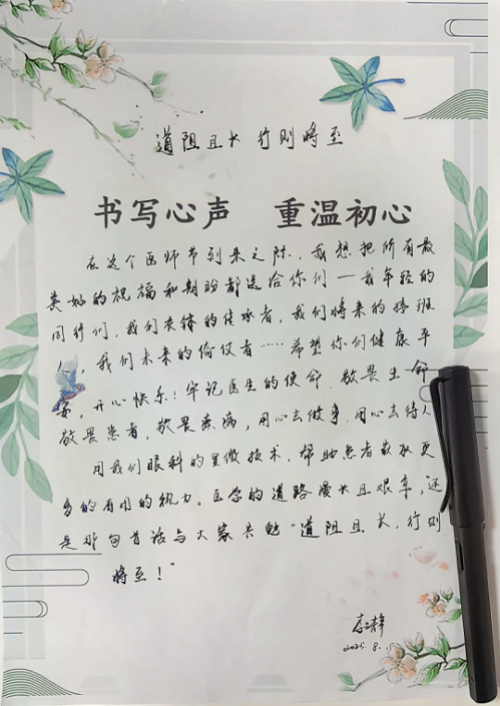 道阻且长 行则将至
书写心声 重温初心
在这个医师节到来之际，我想把所有最
美好的祝福和期盼都送给你们——我年轻的
同行们，我们衣钵的传承者，我们将来的接班
人，我们未来的倚仗者……希望你们健康平
安，开心快乐！牢记医生的使命，敬畏生命
敬畏患者，敬畏疾病，用心去做事，用心去待人
用我们眼科的显微技术，帮助患者获取更
多的有用的视力。医学的道路漫长且艰辛，还
是那句昔话与大家共勉“道阻且长，行则
将至！”
2025.8.